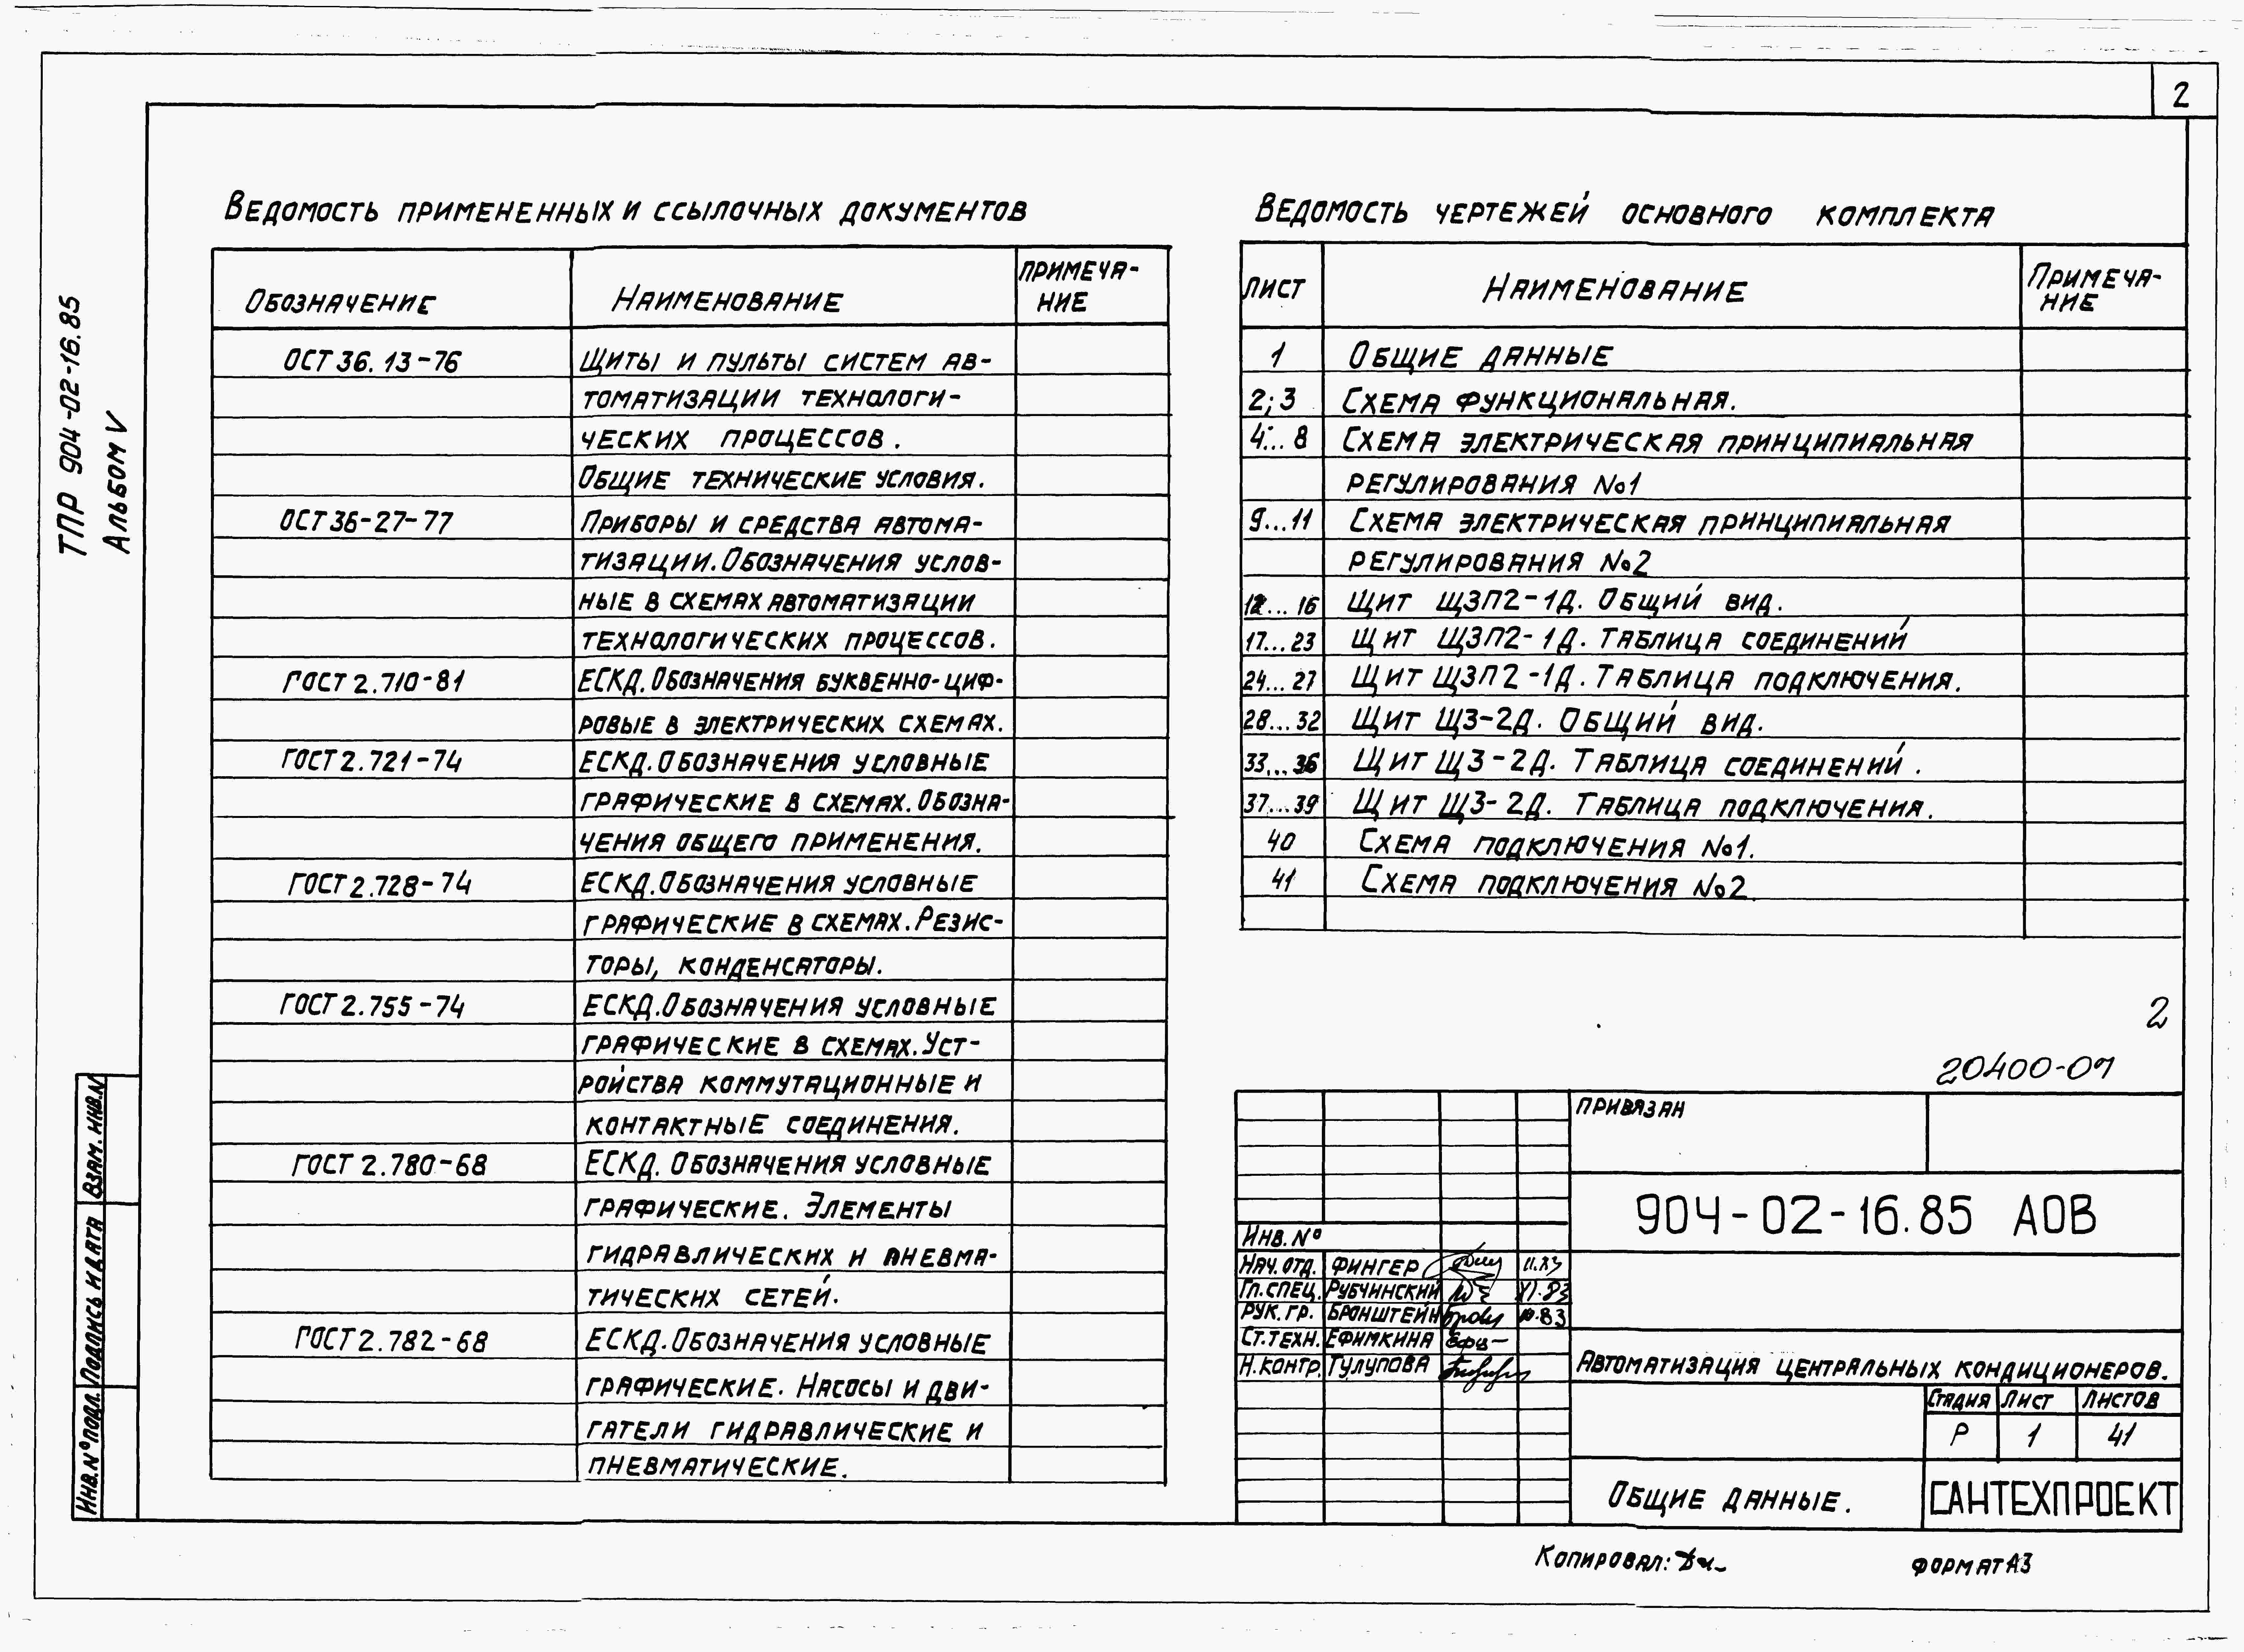 2
ТПР 904-02-16.85
Альбом V
Ведомость примененных и ссылочных документов
Обозначение Наименование Примеча-
ние
ОСТ 36.13-76 Щиты и пульты систем ав-
томатизации технологи-
ческих процессов.
Общие технические условия.
ОСТ 36-27-77 Приборы и средства автома-
тизации. Обозначения услов-
ные в схемах автоматизации
технологических процессов.
ГОСТ 2.710-81 ЕСКД. Обозначения буквенно-циф-
ровые в электрических схемах.
ГОСТ 2.721-74 ЕСКД. Обозначения условные
графические в схемах. Обозна-
чения общего применения.
ГОСТ 2.728-74 ЕСКД. Обозначения условные
графические в схемах. Резис-
торы, конденсаторы.
ГОСТ 2.755-74 ЕСКД. Обозначения условные
графические в схемах. Уст-
ройства коммутационные и
контактные соединения.
ГОСТ 2.780-68 ЕСКД. Обозначения условные
графические. Элементы
гидравлических и пневма-
тических сетей.
ГОСТ 2.782-68 ЕСКД. Обозначения условные
графические. Насосы и дви-
гатели гидравлические и
пневматические.
Ведомость чертежей основного комплекта
Лист Наименование Примеча-
ние
1 Общие данные
2; 3 Схема функциональная.
4... 8 Схема электрическая принципиальная
регулирования №1
9...11 Схема электрическая принципиальная
регулирования №2
12... 16 Щит ЩЗП2-1Д. Общий вид.
17...23 Щит ЩЗП2-1Д. Таблица соединений
24...27 Щит ЩЗП2-1Д. Таблица подключения.
28...32 Щит ЩЗ-2Д. Общий вид.
33...36 Щит ЩЗ-2Д. Таблица соединений.
37...39 Щит ЩЗ-2Д. Таблица подключения.
40 Схема подключения №1.
41 Схема подключения №2.
2
20400-07
Привязан
Инв. №
904-02-16.85 АОВ
Нач. отд. Фингер 11.83
Гл. спец. Рубчинский XI.83
Рук. гр. Бронштейн 10.83
Ст. техн. Ефимкина
Н. контр. Тулупова
Автоматизация центральных кондиционеров.
Стадия Лист Листов
Р 1 41
Общие данные.
САНТЕХПРОЕКТ
Копировал:
Формат А3
Взам. инв. N
Подпись и дата
Инв. № подл.